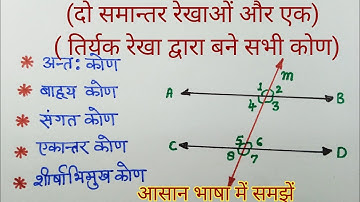 (दो समान्तर रेखाओं और एक)
( तिर्यक रेखा द्वारा बने सभी कोण)
* अन्त: कोण
* बाह्य कोण
* संगत कोण
* एकान्तर कोण
* शीर्षाभिमुख कोण
m
A 1 2 B
4 3
5 6
C D
8 7
आसान भाषा में समझें